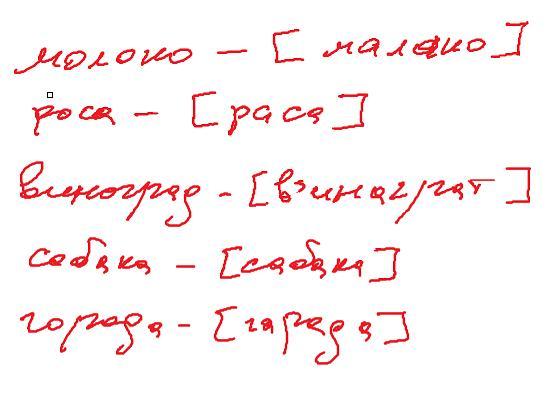 молоко – [малако]
роса – [раса]
виноград – [в'інаграт]
собака – [сабака]
города – [гарада]